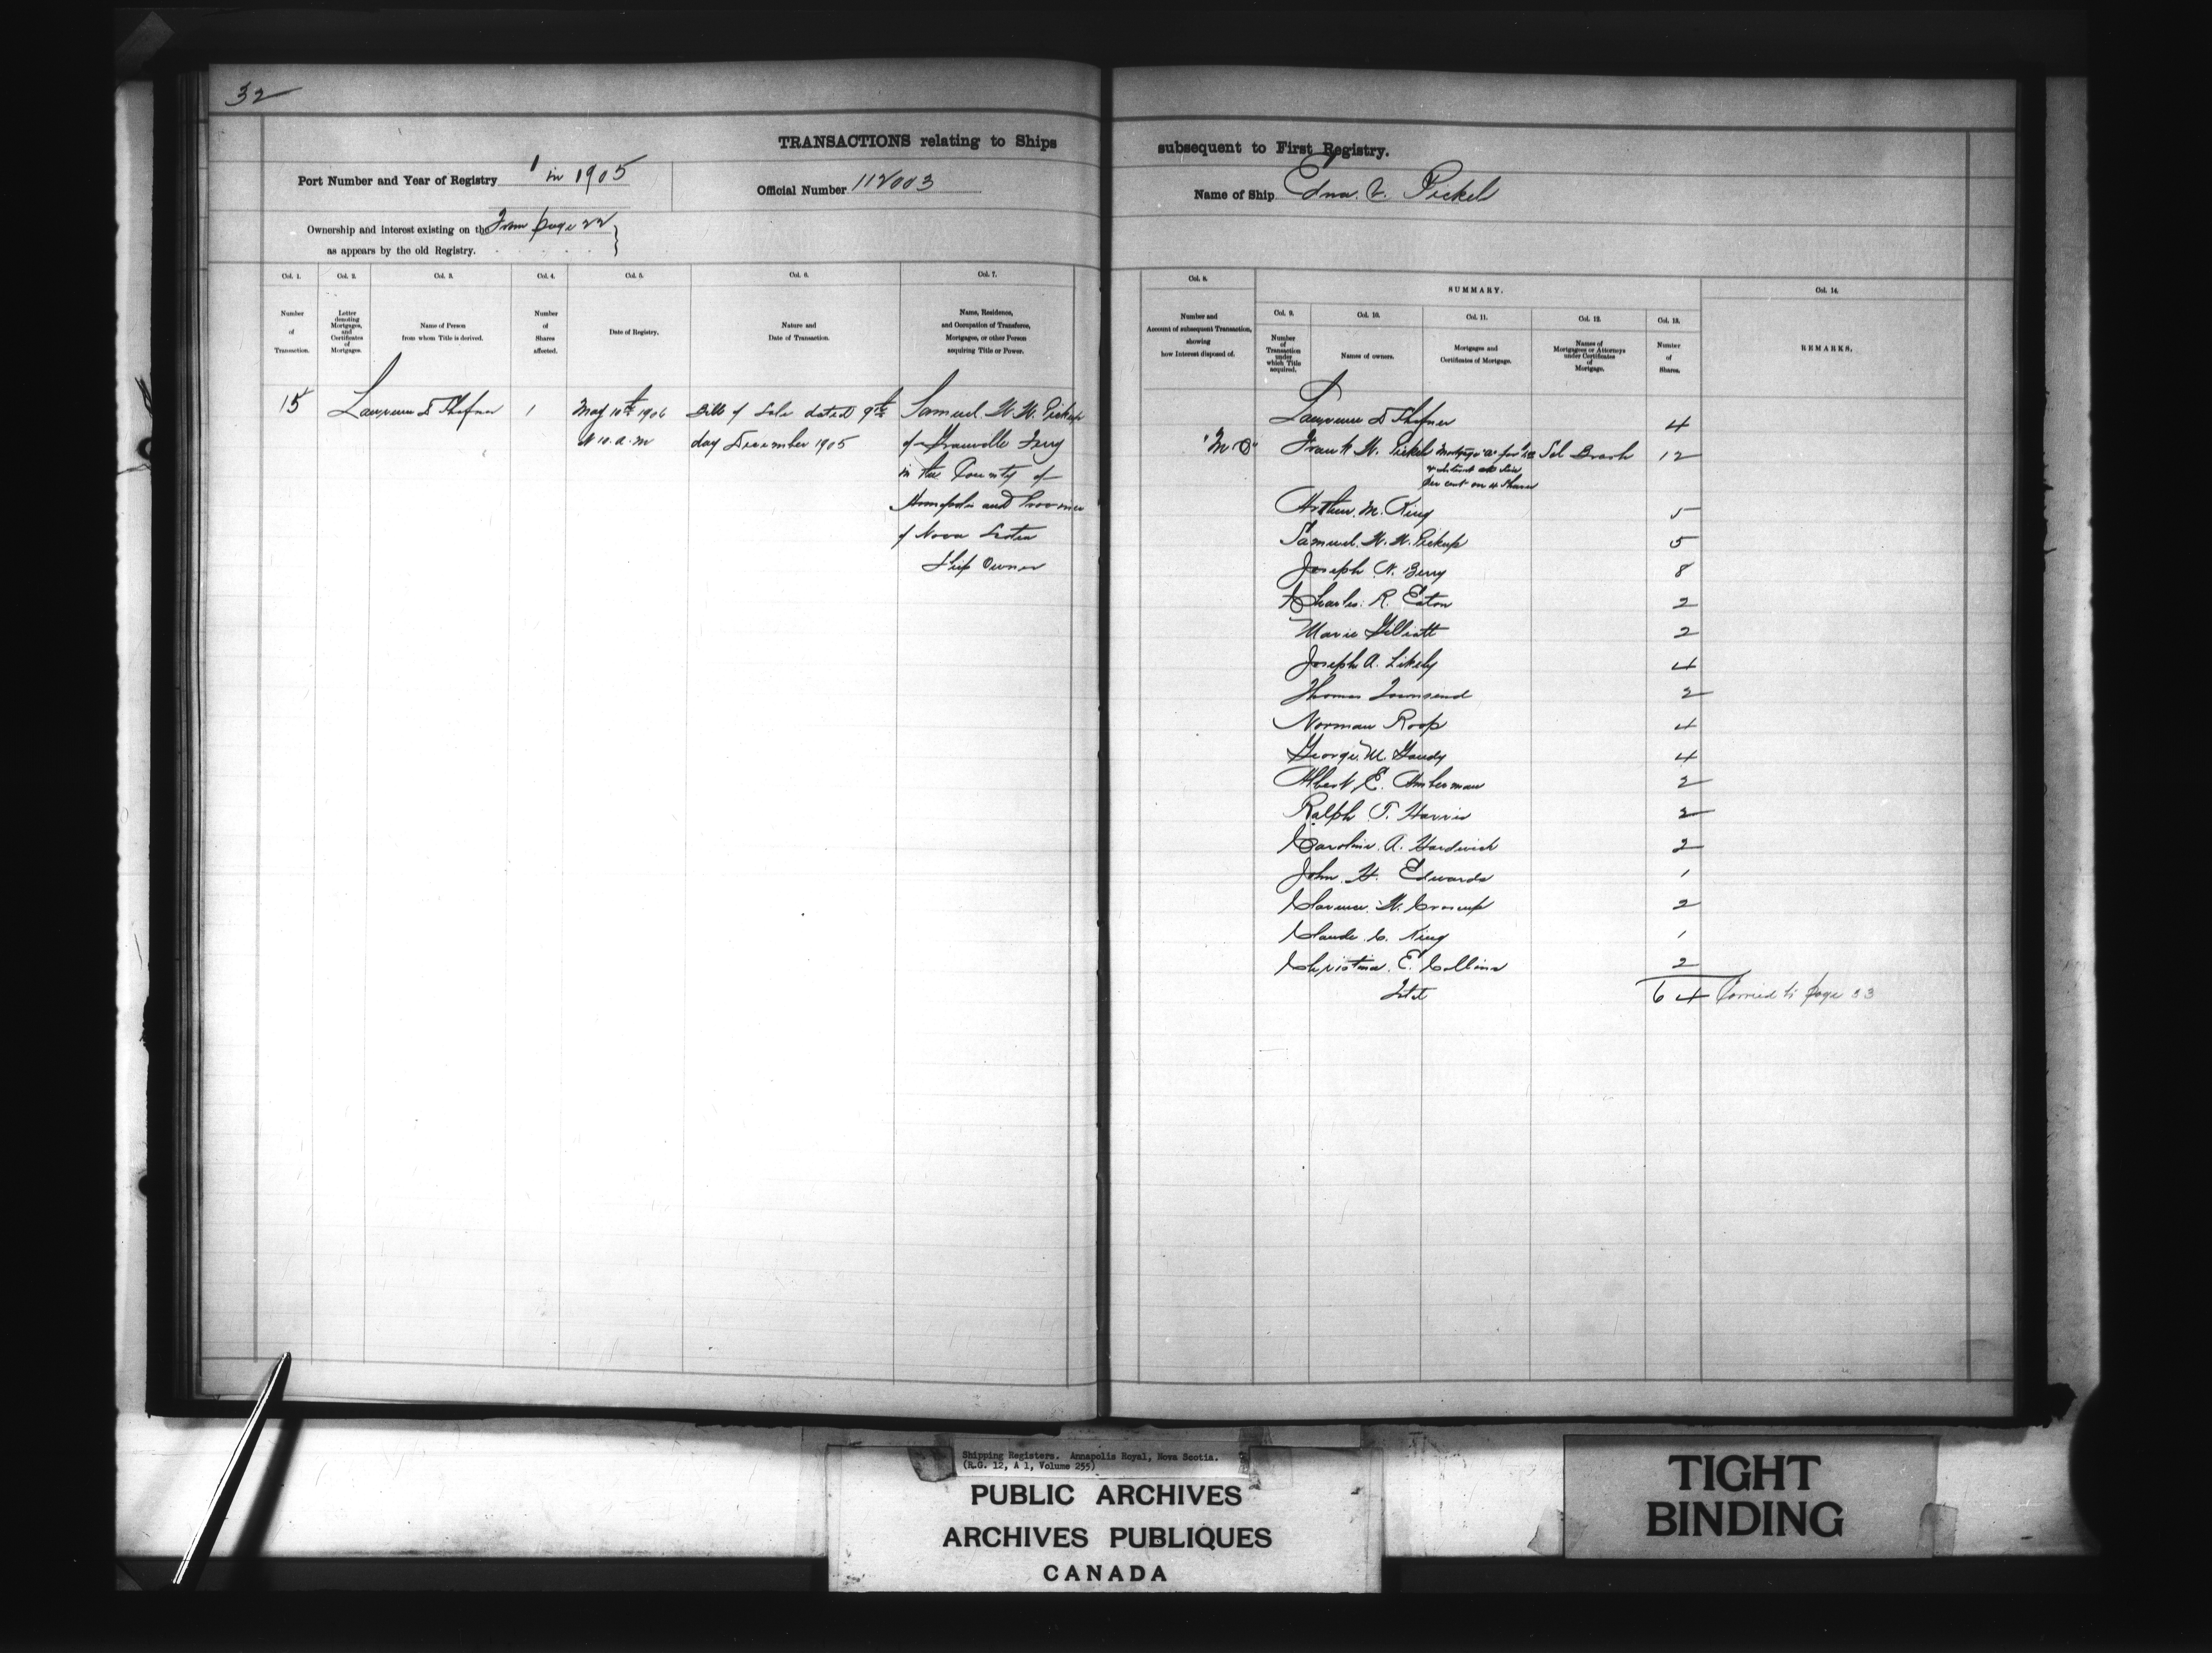 32
TRANSACTIONS relating to Ships subsequent to First Registry.
Port Number and Year of Registry 1 in 1905
Official Number 112003
Name of Ship Edna V. Pickels
Ownership and interest existing on the From page 22
as appears by the old Registry.
Col. 1.
Number
of
Transaction.
Col. 2.
Letter
denoting
Mortgages,
and
Certificates
of
Mortgages.
Col. 3.
Name of Person
from whom Title is derived.
Col. 4.
Number
of
Shares
affected.
Col. 5.
Date of Registry.
Col. 6.
Nature and
Date of Transaction.
Col. 7.
Name, Residence,
and Occupation of Transferee,
Mortgagee, or other Person
acquiring Title or Power.
15 Lawrence D 1 May 10th 1906 Bill of Sale dated 9th Samuel W. W. Pickup
at 10. a. m day December 1905 of Granville Ferry
in the County of
Annapolis and Province
of Nova Scotia
Ship Owner
Col. 8.
Number and
Account of subsequent Transaction,
showing
how Interest disposed of.
SUMMARY.
Col. 9.
Number
of
Transaction
under
which Title
acquired.
Col. 10.
Names of owners.
Col. 11.
Mortgages and
Certificates of Mortgage.
Col. 12.
Names of
Mortgagees or Attorneys
under Certificates
of
Mortgage.
Col. 13.
Number
of
Shares.
Col. 14.
REMARKS.
Lawrence D 4
Frank W. Pickels Mortgage "A" for 12
per cent on 4 Shares
Arthur. M. King 5
Samuel. W. W. Pickup 5
Joseph N. Berry 8
Charles. R. Eaton 2
Marie Gilliatt 2
Joseph A. Likely 4
Thomas Townsend 2
Norman Roop 4
George. M. 4
Albert E. Amberman 2
Ralph T. Harris 2
Caroline. A. Hardwick 2
John. H. Edwards 1
Clarence. W. Croscup 2
Claude. C. King 1
Christina. E. Collins 2
Total 64 Carried to page 33
Shipping Registers. Annapolis Royal, Nova Scotia.
(R.G. 12, A 1, Volume 255)
PUBLIC ARCHIVES
ARCHIVES PUBLIQUES
CANADA
TIGHT
BINDING